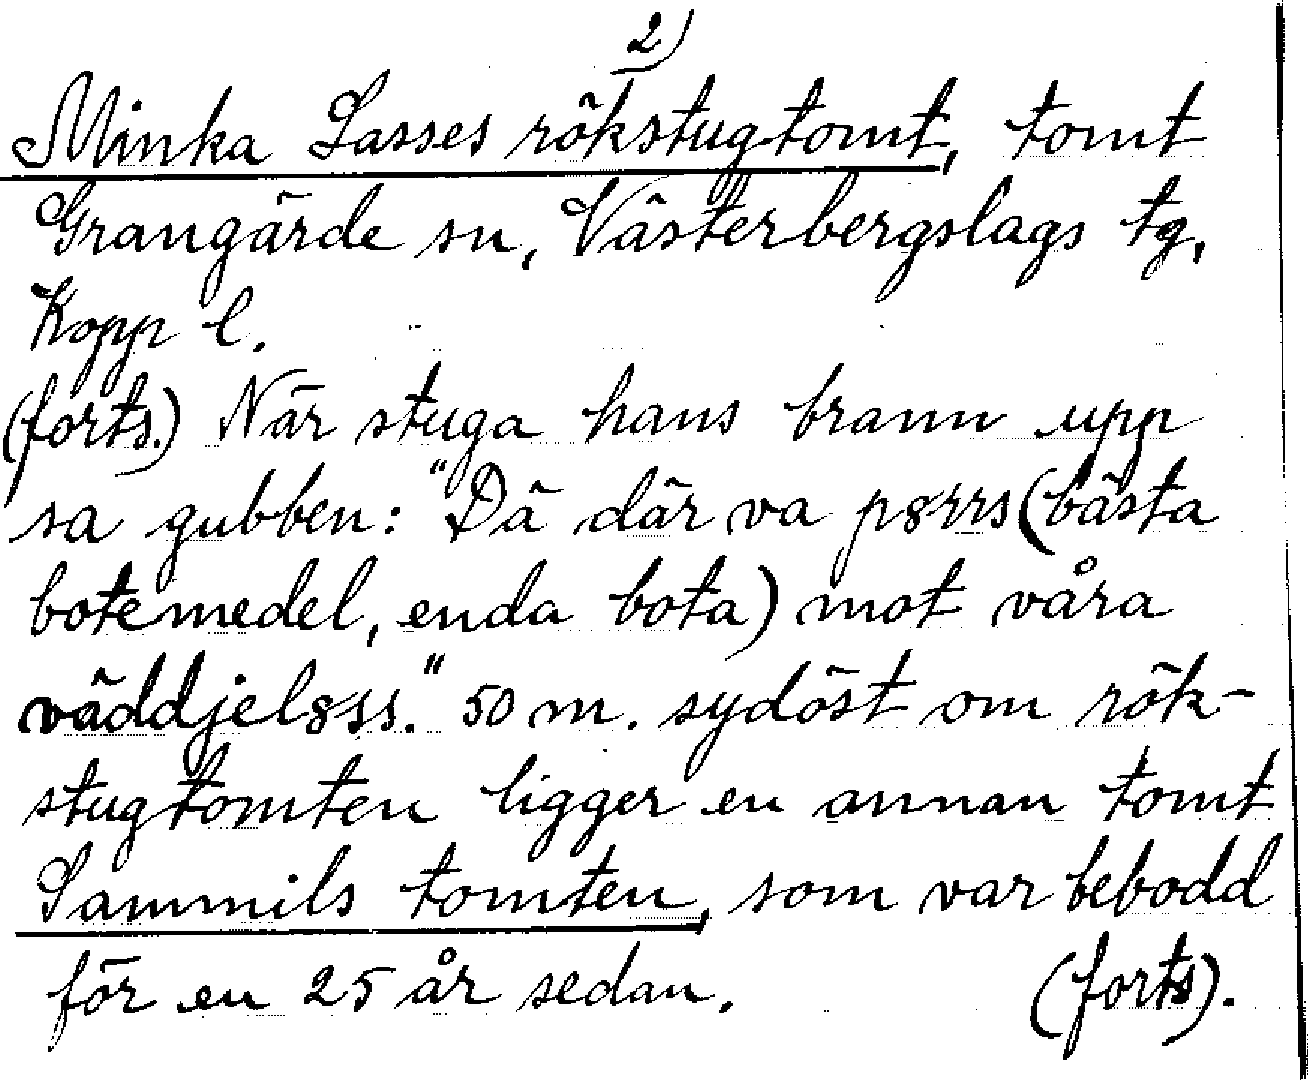 2)
Minka Lasses rökstugtomt, tomt
Grangärde sn, Västerbergslags tg,
Kopp l.
(forts.) När stuga hans brann upp
sa gubben: "Dä där va p8rrs (bästa
botemedel, enda bota) mot våra
väddjel8ss." 50 m. sydöst om rök-
stugtomten ligger en annan tomt
Sammils tomten, som var bebodd
för en 25 år sedan. (forts).